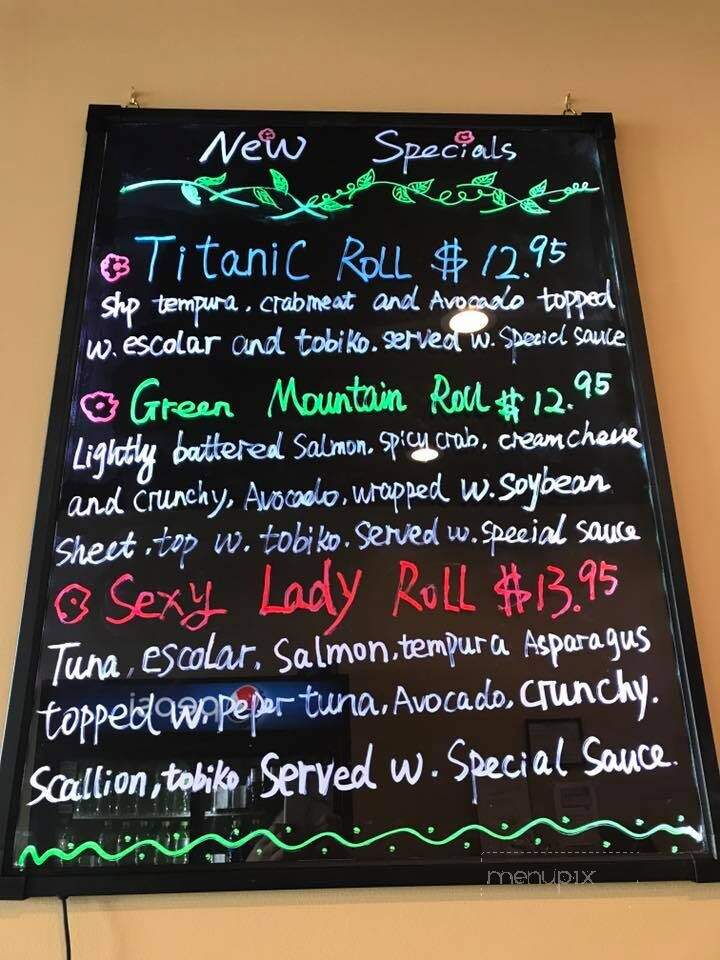 New Specials
Titanic Roll $12.95
Shp tempura, crabmeat and Avocado topped
w. escolar and tobiko. served w. Special sauce
Green Mountain Roll $12.95
Lightly battered Salmon, spicy crab, cream cheese
and crunchy, Avocado, wrapped w. Soybean
Sheet, top w. tobiko. Served w. special sauce
Sexy Lady Roll $13.95
Tuna, escolar, Salmon, tempura Asparagus
topped w. peper tuna, Avocado, Crunchy.
Scallion, tobiko, Served w. Special Sauce.
pepsi
menupix